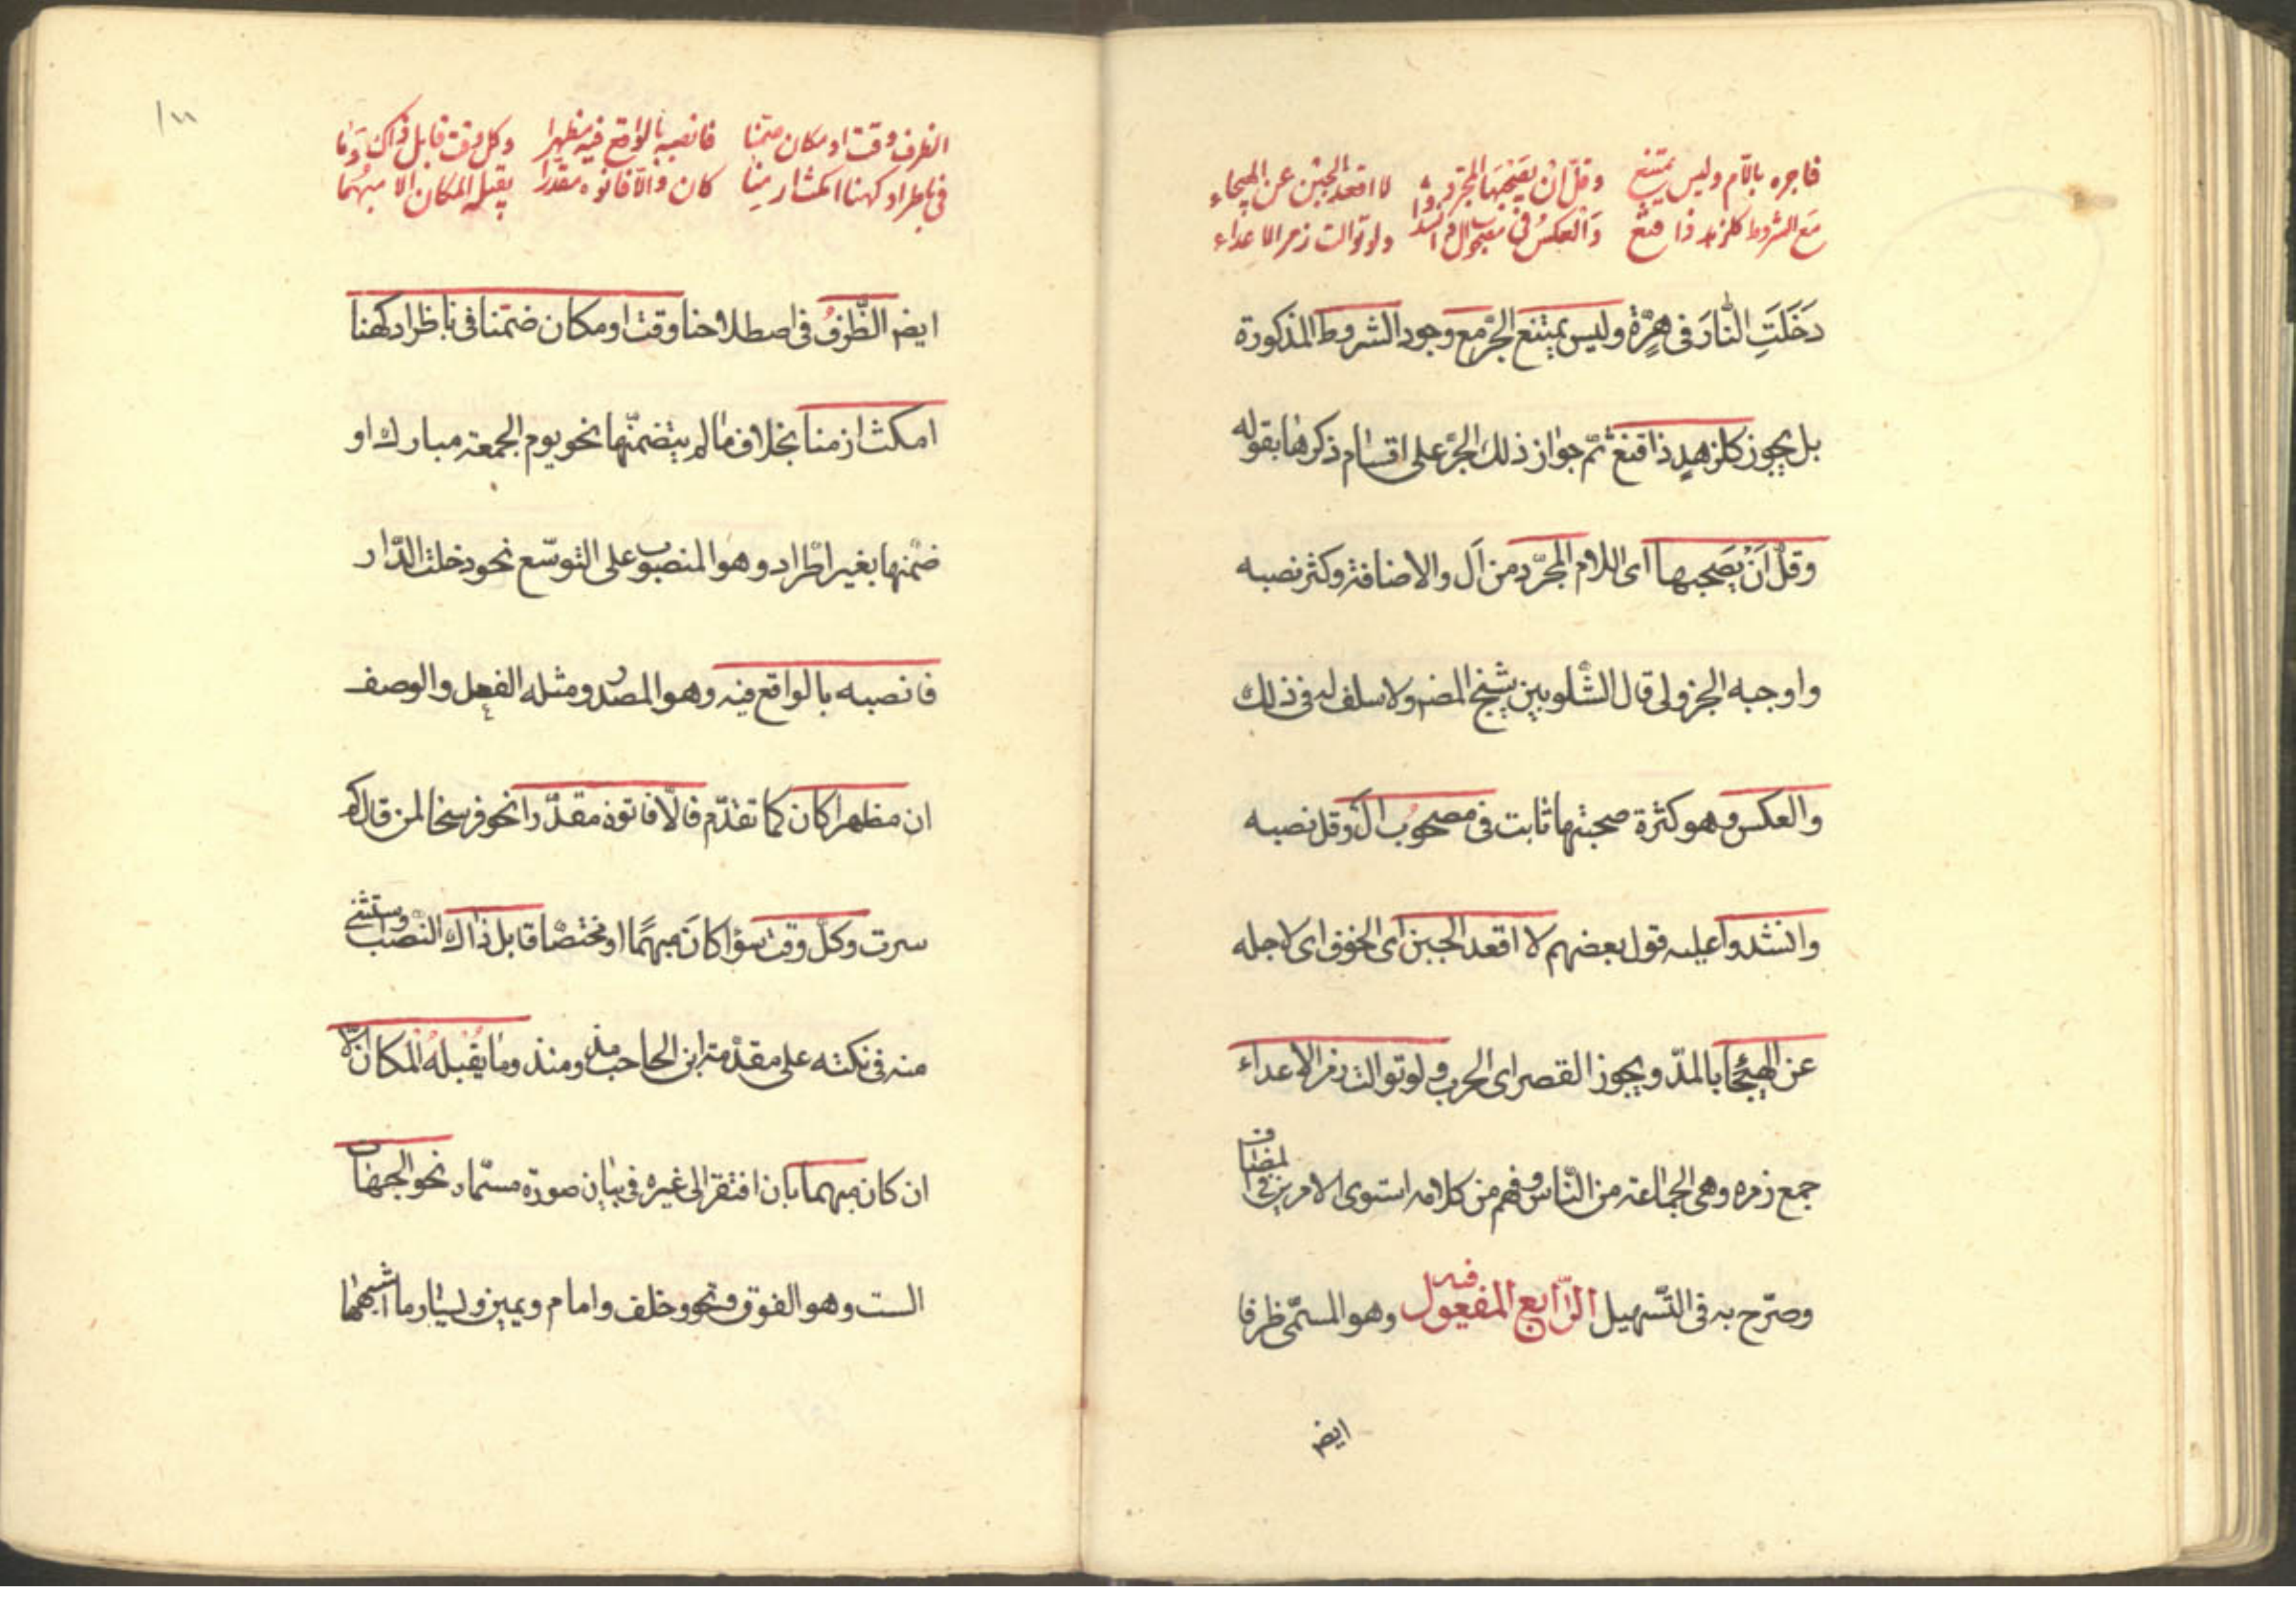 فاجره باللّام وليس يمتنع وقلّ ان يصحبها المجرّد لا اقعد الجبن عن الهيجاء
مع الشروط كلزهد ذا قنع وَالعكسُ في مصحوب ال وانشدوا ولو توالت زمر الاعداء
دَخَلَتِ النّارَ فى هِرَّةٍ وليس يمتنع الجرّ مع وجود الشروط المذكورة
بل يجوز كلزهدٍ ذا قنع ثمّ جواز ذلك الجرّ على اقسام ذكرها بقوله
وقلّ اَنْ يَصحبها اى اللام المجرّد من اَل والاضافة وكثر نصبه
واوجبه الجزولى قال الشّلوبين شيخ المصنم ولا سلف له فى ذلك
والعكس وهو كثرة صحبتها ثابت فى مصحوُب الْ وقل نصبه
وانشدوا عليه قول بعضهم لا اقعد الجبن اى الخوف اى لاجله
عن الهيجا بالمدّ ويجوز القصر اى الحرب ولو توالت زمر الاعداء
جمع زمره وهى الجماعة من النّاس وفهم من كلامه استوى الامرين فى المضاف
وصرّح به فى التّسهيل الرّابع المفعول فيه وهو المسمّى ظرفا
ايضم
١١
الظرف وقت او مكان ضمّنا فانصبه بالواقع فيه مظهرا وكل وقت قابل ذاك وَمَا
فى باطراد كهنا امكث ازمنا كان والّا فانوه مقدرا يقبله المكان الا مبهما
ايضم الظّرفُ فى اصطلاحنا وقت او مكان ضمّنا فى باطراد كهنا
امكث ازمنا بخلاف ما لم يتضمّنها نحو يوم الجمعة مبارك او
ضمّنها بغير اطّراد وهو المنصوب على التوسّع نحو دخلت الدّار
فانصبه بالواقع فيه وهو المصدر ومثله الفعل والوصف
ان مظهرا كان كما تقدّم فالّا فانوه مقدّرا نحو فرسخا لمن قال كم
سرت وكلّ وقت سؤا كانَ مبهمًا او مختصّا قابل ذاك النّصب واستثنى
منه فى نكته على مقدّمة ابن الحاجب مذ ومنذ وما يقبله المكان الّا
ان كان مبهما بان افتقر الى غيره فى بيان صورة مسمّاه نحو الجهات
الست وهو الفوق وتحت وخلف وامام ويمين ويسار وما اشبهها